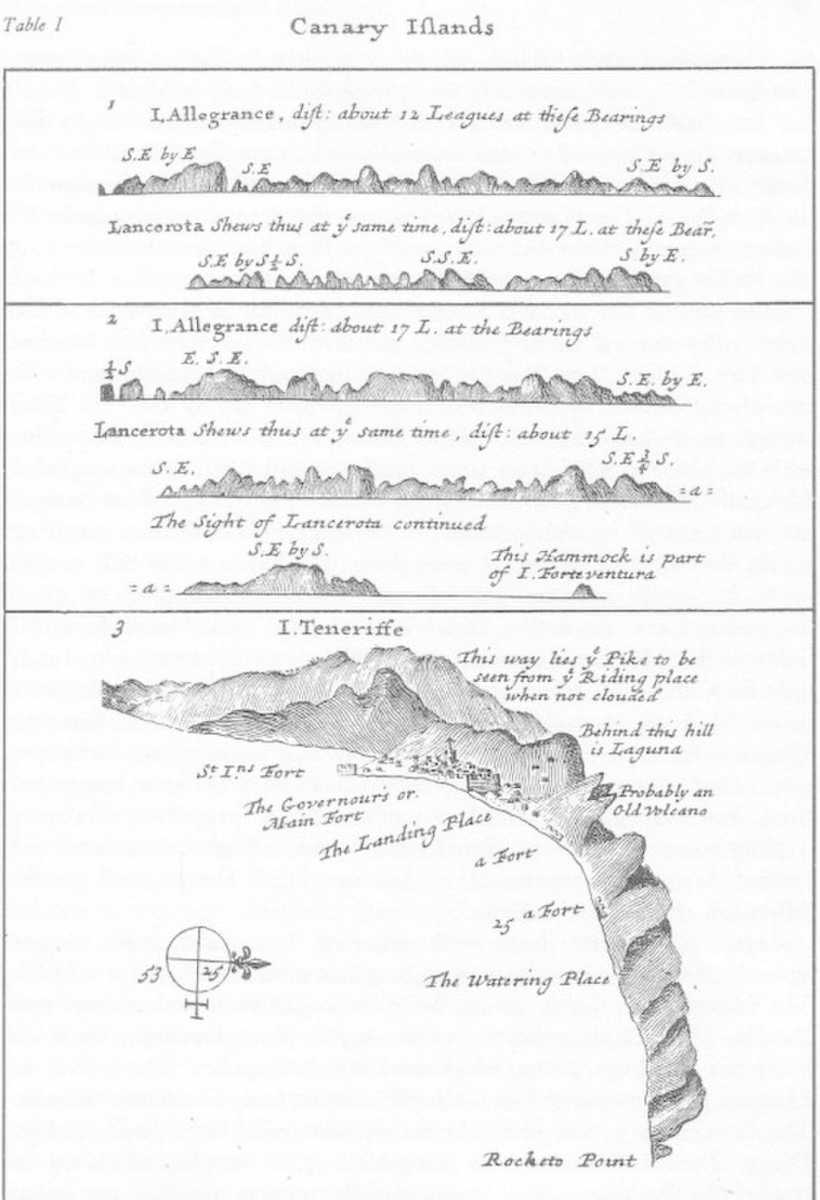 Table I
Canary Iſlands
1
I.Allegrance, diſt: about 12 Leagues at theſe Bearings
S.E by E
S.E
S.E by S.
Lancerota Shews thus at yᵉ same time, diſt: about 17 L. at theſe Bear̃.
S.E by S ½ S.
S.S.E.
S by E.
2
I.Allegrance diſt: about 17 L. at the Bearings
½ S
E. S. E.
S.E. by E.
Lancerota Shews thus at yᵉ same time, diſt: about 15 L.
S.E.
S.E ¾ S.
=a=
The Sight of Lancerota continued
S.E by S.
This Hammock is part
of I. Forteventura
=a=
3
I.Teneriffe
This way lies yᵉ Pike to be
seen from yᵉ Riding place
when not clouded
Behind this hill
is Laguna
Sᵗ I.ⁿˢ Fort
Probably an
Old Volcano
The Governours or
Main Fort
The Landing Place
a Fort
a Fort
25
53
25
The Watering Place
Rocketo Point